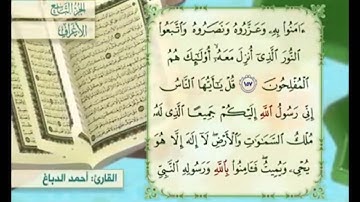 الجزء التاسع
الأعراف
ءَامَنُوا۟ بِهِۦ وَعَزَّرُوهُ وَنَصَرُوهُ وَٱتَّبَعُوا۟
ٱلنُّورَ ٱلَّذِىٓ أُنزِلَ مَعَهُۥٓ أُو۟لَـٰٓئِكَ هُمُ
ٱلْمُفْلِحُونَ ١٥٧ قُلْ يَـٰٓأَيُّهَا ٱلنَّاسُ
إِنِّى رَسُولُ ٱللَّهِ إِلَيْكُمْ جَمِيعًا ٱلَّذِى لَهُۥ
مُلْكُ ٱلسَّمَـٰوَٰتِ وَٱلْأَرْضِ ۖ لَآ إِلَـٰهَ إِلَّا هُوَ
يُحْىِۦ وَيُمِيتُ ۖ فَـَٔامِنُوا۟ بِٱللَّهِ وَرَسُولِهِ ٱلنَّبِىِّ
القارئ: أحمد الدباغ